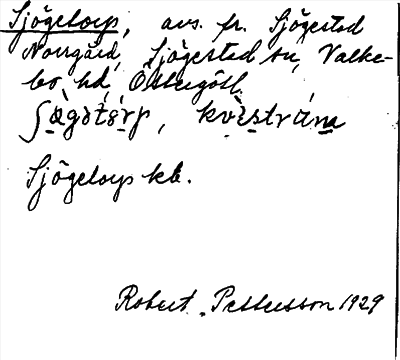 Sjögetorp, avs. fr. Sjögestad
Norrgård, Sjögestad sn, Valke-
bo hd, Östergötl.
kvɛ̀stråna
Sjögetorp kb.
Robert Pettersson 1929